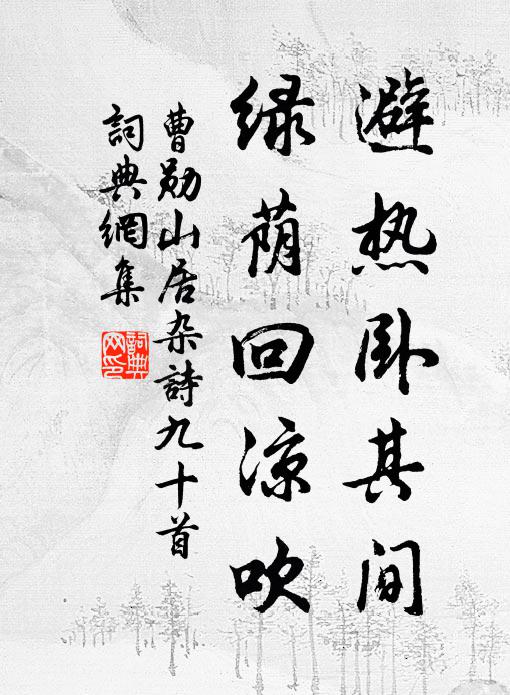 避热卧其间
绿荫回凉吹
曹勋山居杂詩九十首
詞典網集
詞典网印